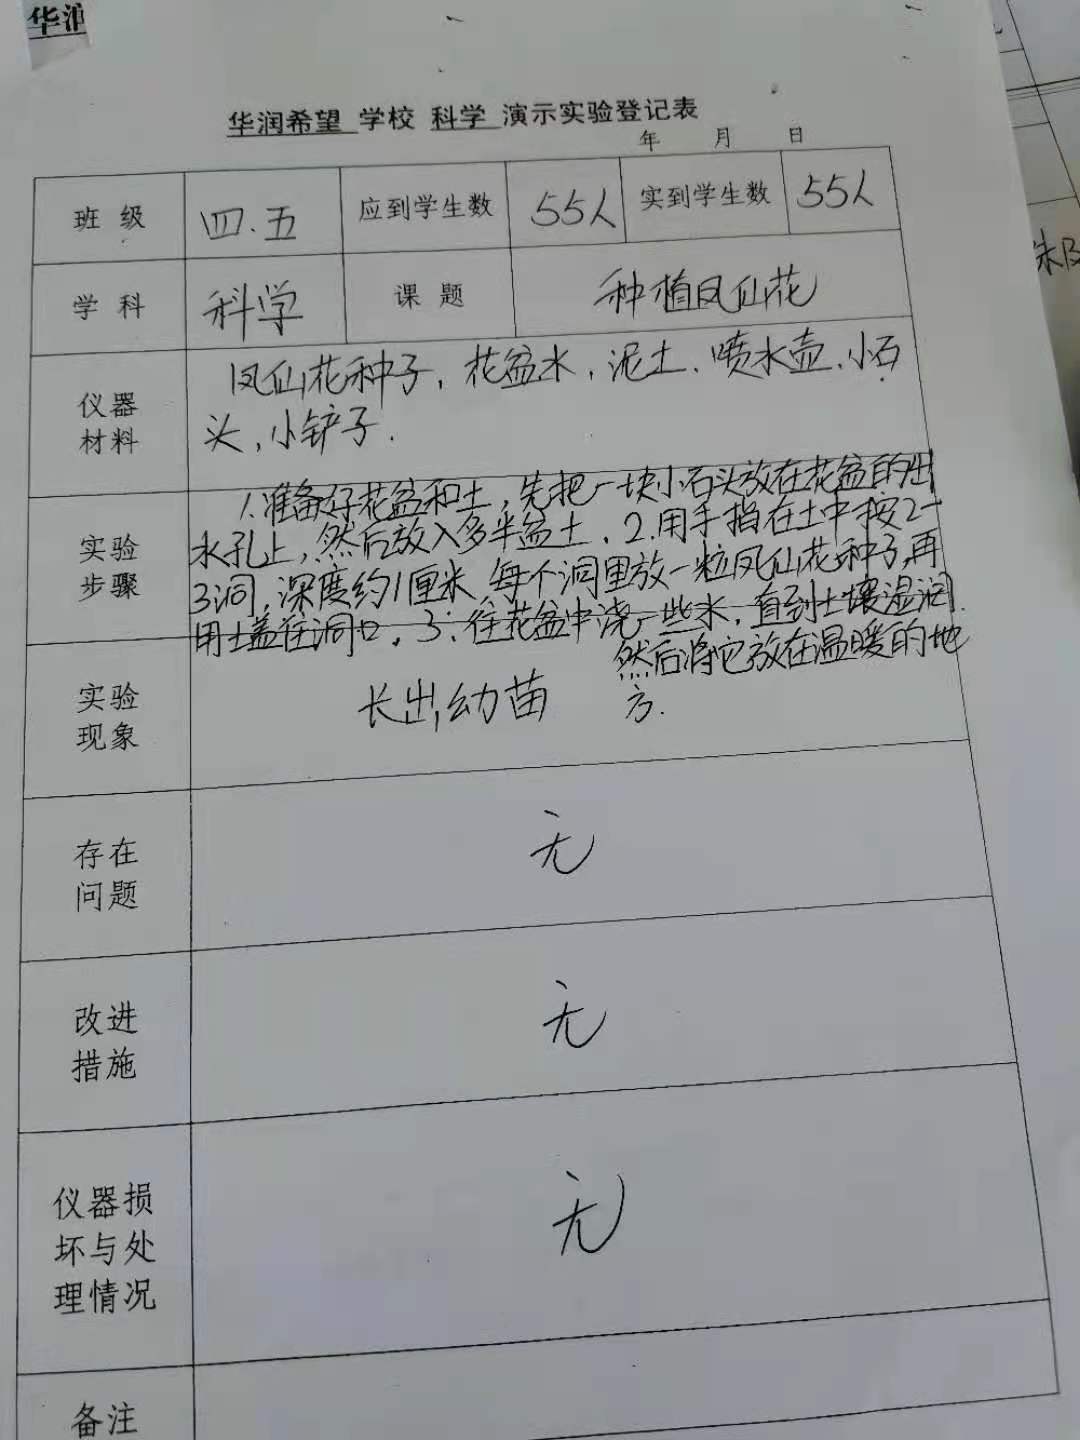 华润
华润希望 学校 科学 演示实验登记表
年 月 日
班 级 四.五 应到学生数 55人 实到学生数 55人
学 科 科学 课 题 种植凤仙花
仪器
材料
凤仙花种子，花盆水，泥土、喷水壶、小石
头，小铲子.
实验
步骤
1.准备好花盆和土，先把一块小石头放在花盆的出
水孔上，然后放入多半盆土. 2.用手指在土中按2-
3洞，深度约1厘米，每个洞里放一粒凤仙花种子，再
用土盖住洞口. 3：往花盆中浇一些水，直到土壤湿润.
然后将它放在温暖的地
方.
实验
现象
长出幼苗
存在
问题
无
改进
措施
无
仪器损
坏与处
理情况
无
备注